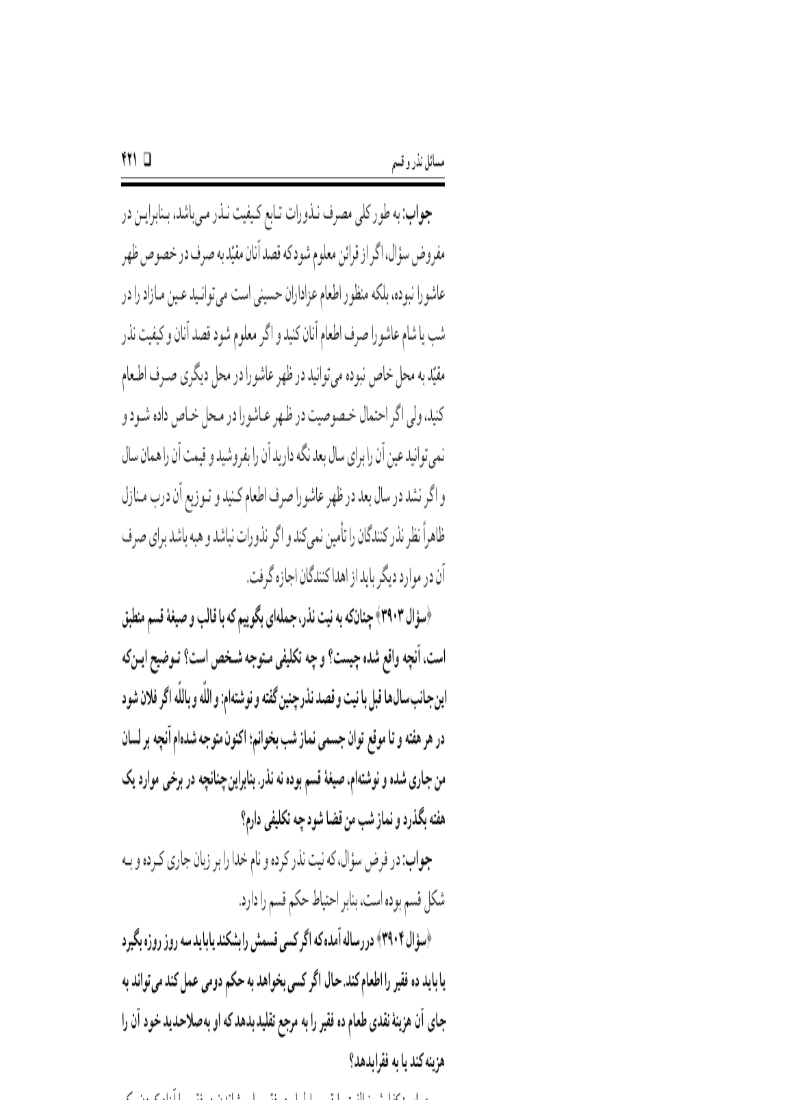 مسائل نذر و قسم ❑ ۴۲۱
جواب: به طور کلی مصرف نذورات تابع کیفیت نذر می‌باشد، بنابراین در
مفروض سؤال، اگر از قرائن معلوم شود که قصد آنان مقیّد به صرف در خصوص ظهر
عاشورا نبوده، بلکه منظور اطعام عزاداران حسینی است می‌توانید عین مازاد را در
شب یا شام عاشورا صرف اطعام آنان کنید و اگر معلوم شود قصد آنان و کیفیت نذر
مقیّد به محل خاص نبوده می‌توانید در ظهر عاشورا در محل دیگری صرف اطعام
کنید، ولی اگر احتمال خصوصیت در ظهر عاشورا در محل خاص داده شود و
نمی‌توانید عین آن را برای سال بعد نگه دارید آن را بفروشید و قیمت آن را همان سال
و اگر نشد در سال بعد در ظهر عاشورا صرف اطعام کنید و توزیع آن درب منازل
ظاهراً نظر نذر کنندگان را تأمین نمی‌کند و اگر نذورات نباشد و هبه باشد برای صرف
آن در موارد دیگر باید از اهدا کنندگان اجازه گرفت.
﴿سؤال ۳۹۰۳﴾ چنان‌که به نیت نذر، جمله‌ای بگوییم که با قالب و صیغهٔ قسم منطبق
است، آنچه واقع شده چیست؟ و چه تکلیفی متوجه شخص است؟ توضیح این‌که
این‌جانب سال‌ها قبل با نیت و قصد نذر چنین گفته و نوشته‌ام: و اللّه و باللّه اگر فلان شود
در هر هفته و تا موقع توان جسمی نماز شب بخوانم؛ اکنون متوجه شده‌ام آنچه بر لسان
من جاری شده و نوشته‌ام، صیغهٔ قسم بوده نه نذر. بنابراین چنانچه در برخی موارد یک
هفته بگذرد و نماز شب من قضا شود چه تکلیفی دارم؟
جواب: در فرض سؤال، که نیت نذر کرده و نام خدا را بر زبان جاری کرده و به
شکل قسم بوده است، بنابر احتیاط حکم قسم را دارد.
﴿سؤال ۳۹۰۴﴾ در رساله آمده که اگر کسی قسمش را بشکند یا باید سه روز روزه بگیرد
یا باید ده فقیر را اطعام کند. حال اگر کسی بخواهد به حکم دومی عمل کند می‌تواند به
جای آن هزینهٔ نقدی طعام ده فقیر را به مرجع تقلید بدهد که او به صلاحدید خود آن را
هزینه کند یا به فقرا بدهد؟